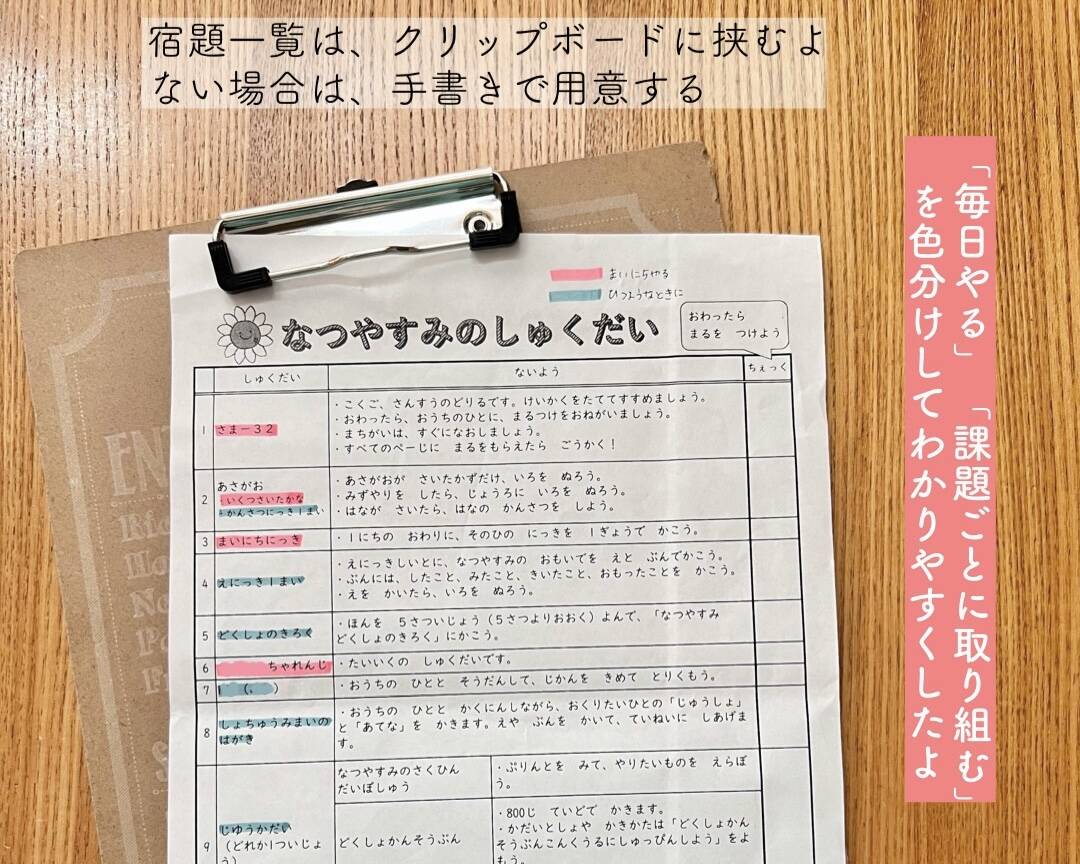 宿題一覧は、クリップボードに挟むよ
ない場合は、手書きで用意する
「毎日やる」「課題ごとに取り組む」
を色分けしてわかりやすくしたよ
まいにちやる
ひつようなときに
なつやすみのしゅくだい
おわったら
まるを つけよう
しゅくだい
ないよう
ちぇっく
1
さまー32
・こくご、さんすうのどりるです。けいかくをたててすすめましょう。
・おわったら、おうちのひとに、まるつけをおねがいましょう。
・まちがいは、すぐになおしましょう。
・すべてのぺーじに まるをもらえたら ごうかく！
2
あさがお
・いくつさいたかな
・かんさつにっき1まい
・あさがおが さいたかずだけ、いろを ぬろう。
・みずやりを したら、じょうろに いろを ぬろう。
・はなが さいたら、はなの かんさつを しよう。
3
まいにちにっき
・1にちの おわりに、そのひの にっきを 1ぎょうで かこう。
4
えにっき1まい
・えにっきしいとに、なつやすみの おもいでを えと ぶんでかこう。
・ぶんには、したこと、みたこと、きいたこと、おもったことを かこう。
・えを かいたら、いろを ぬろう。
5
どくしょのきろく
・ほんを 5さついじょう（5さつよりおおく）よんで、「なつやすみ
どくしょのきろく」にかこう。
6
ちゃれんじ
・たいいくの しゅくだいです。
7
・おうちの ひとと そうだんして、じかんを きめて とりくもう。
8
しょちゅうみまいの
はがき
・おうちの ひとと かくにんしながら、おくりたいひとの「じゅうしょ」
と「あてな」を かきます。えや ぶんを かいて、ていねいに しあげま
す。
9
じゆうかだい
（どれか1ついじょ
う）
なつやすみのさくひん
だいぼしゅう
・ぷりんとを みて、やりたいものを えらぼ
う。
どくしょかんそうぶん
・800じ ていどで かきます。
・かだいとしょや かきかたは「どくしょかん
そうぶんこんくうるにしゅっぴんしよう」をよ
もう。